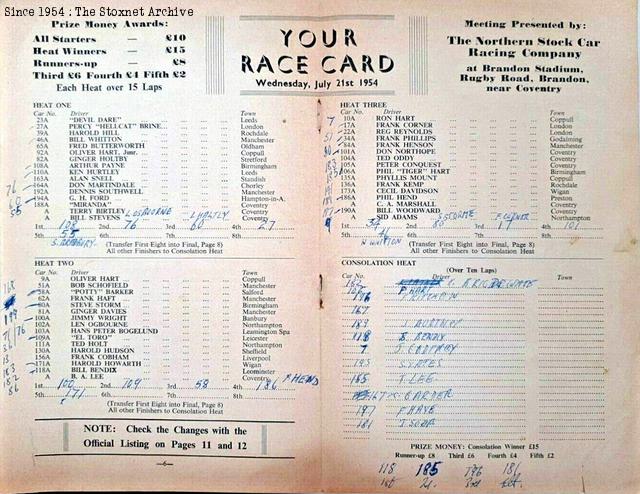 Since 1954 : The Stoxnet Archive
Prize Money Awards:
All Starters — £10
Heat Winners — £15
Runners-up — £8
Third £6 Fourth £4 Fifth £2
Each Heat over 15 Laps
YOUR
RACE CARD
Wednesday, July 21st 1954
Meeting Presented by:
The Northern Stock Car
Racing Company
at Brandon Stadium,
Rugby Road, Brandon,
near Coventry
HEAT ONE
Car No. Driver Town
23A "DEVIL DARE" Leeds
27A PERCY "HELLCAT" BRINE... London
39A HAROLD HILL Rochdale
46A BILL WHITTON Manchester
65A FRED BUTTERWORTH Oldham
92A OLIVER HART, Junr. Coppull
82A GINGER HOLTBY Stretford
108A ARTHUR PAYNE Birmingham
110A KEN HURTLEY Leeds
163A ALAN SNELL Standish
64A DON MARTINDALE Chorley
192A DENNIS SOUTHWELL Manchester
194A G. H. FORD Hampton-in-A.
188A "MIRANDA" Coventry
A TERRY BIRTLEY Coventry
A BILL STEVENS Coventry
1st. 2nd. 76 3rd. 60 4th. 27
5th. 6th. 7th. 8th.
(Transfer First Eight into Final, Page 8)
All other Finishers to Consolation Heat
HEAT TWO
Car No. Driver Town
9A OLIVER HART Coppull
51A BOB SCHOFIELD Manchester
58A "POTTY" BARKER Salford
62A FRANK HAFT Manchester
A STEVE STORM Birmingham
81A GINGER DAVIES Manchester
100A JIMMY WRIGHT Banbury
102A LEN OGBOURNE Northampton
103A HANS PETER BOGELUND Leamington Spa
109A "EL TORO" Leicester
111A TED HOLT Northampton
130A HAROLD HUDSON Sheffield
156A FRANK COBHAM Liverpool
171A HAROLD HOWARTH Wigan
118A BILL BENDIX Leominster
A B. A. LEE Coventry
1st. 100 2nd. 109 3rd. 58 4th. 186 P HEND
5th. 171 6th. 7th. 8th.
(Transfer First Eight into Final, Page 8)
All other Finishers to Consolation Heat
NOTE: Check the Changes with the
Official Listing on Pages 11 and 12
—6—
HEAT THREE
Car No. Driver Town
10A RON HART Coppull
17A FRANK CORNER London
22A REG REYNOLDS London
34A FRANK PHILLIPS Godalming
84A FRANK HENSON Manchester
101A DON NORTHOPE Coventry
104A TED ODDY Coventry
105A PETER CONQUEST Coventry
106A PHIL "TIGER" HART Birmingham
135A PHYLLIS MOUNT Coppull
136A FRANK KEMP Rochdale
173A CECIL DAVIDSON Wigan
86A PHIL HEND Preston
A C. A. MARSHALL Coventry
190A BILL WOODWARD Coventry
A SID ADAMS Northampton
1st. 2nd. 80 3rd. 17 4th. 101
5th. 6th. 7th. 8th.
(Transfer First Eight into Final, Page 8)
All other Finishers to Consolation Heat
CONSOLATION HEAT
(Over Ten Laps)
Car No. Driver Town
P HART
167
118 B. BENDX
193 S YATES
185 T LEE
197 P HAYE
PRIZE MONEY: Consolation Winner £15
Runner-up £8 Third £6 Fourth £4 Fifth £2
118 185 196 186
1st 2d. 3rd